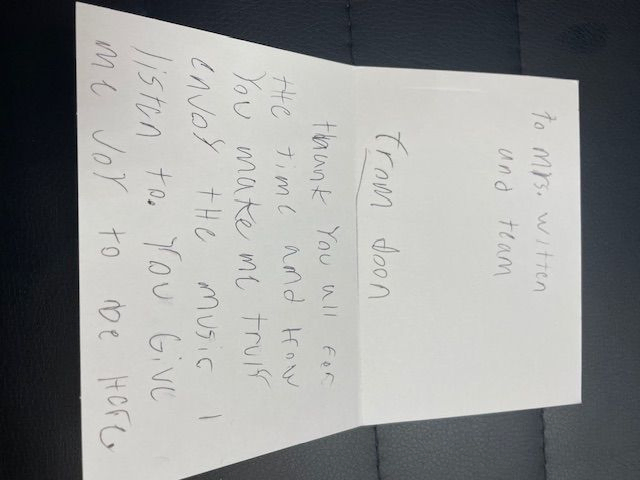 to mrs. witten
and team
from doon
thank You all for
the time and How
You make me truly
enjoy the music I
listen to. You Give
me joy to be Here,